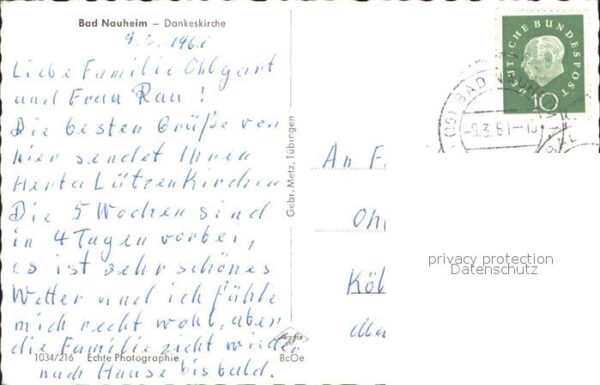 Bad Nauheim – Dankeskirche
9.3.1961
Liebe Familie Ohlgart
und Frau Rau!
Die besten Grüße von
hier sendet Ihnen
Herta Lützenkirchen
Die 5 Wochen sind
in 4 Tagen vorbei,
es ist sehr schönes
Wetter und ich fühle
mich recht wohl, aber
die Familie zieht wieder
nach Hause bis bald.
1034/216 Echte Photographie
BcOe
Gebr. Metz, Tübingen
Agfa
DEUTSCHE BUNDESPOST
10
BAD
9.3.61
An F
Oh
Köl
privacy protection
Datenschutz